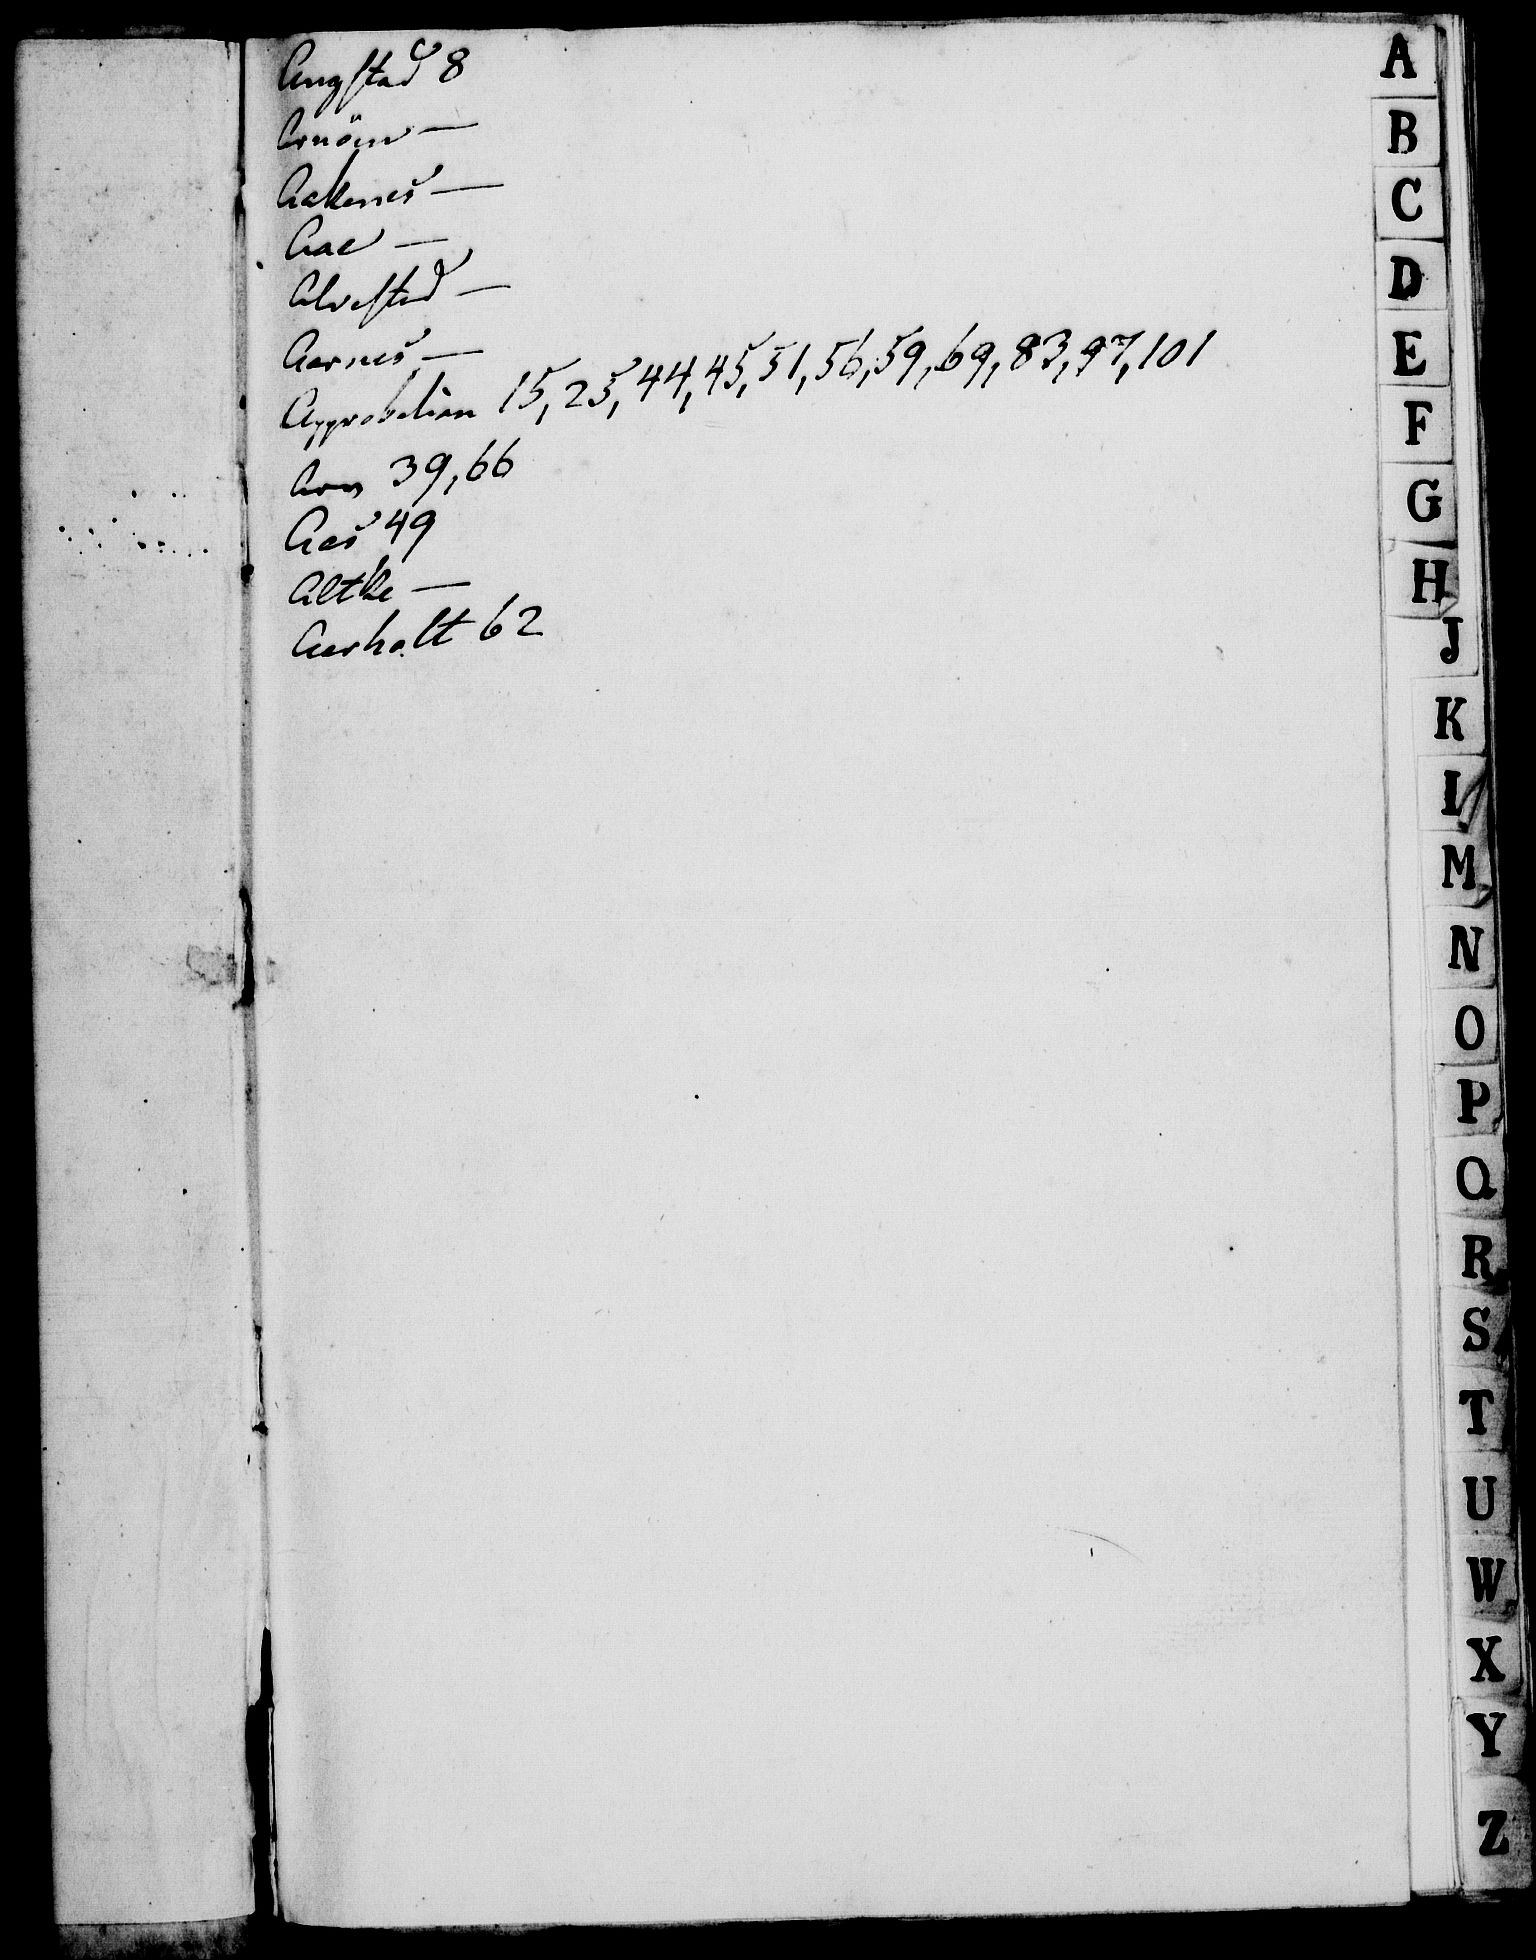 Angstad 8
Arnöen —
Aakenes —
Aae —
Alvestad —
Aarnes —
Approbation 15, 25, 44, 45, 51, 56, 59, 69, 83, 97, 101
Arv 39, 66
Aas 49
Altke —
Aarholtt 62
A
B
C
D
E
F
G
H
J
K
L
M
N
O
P
Q
R
S
T
U
W
X
Y
Z